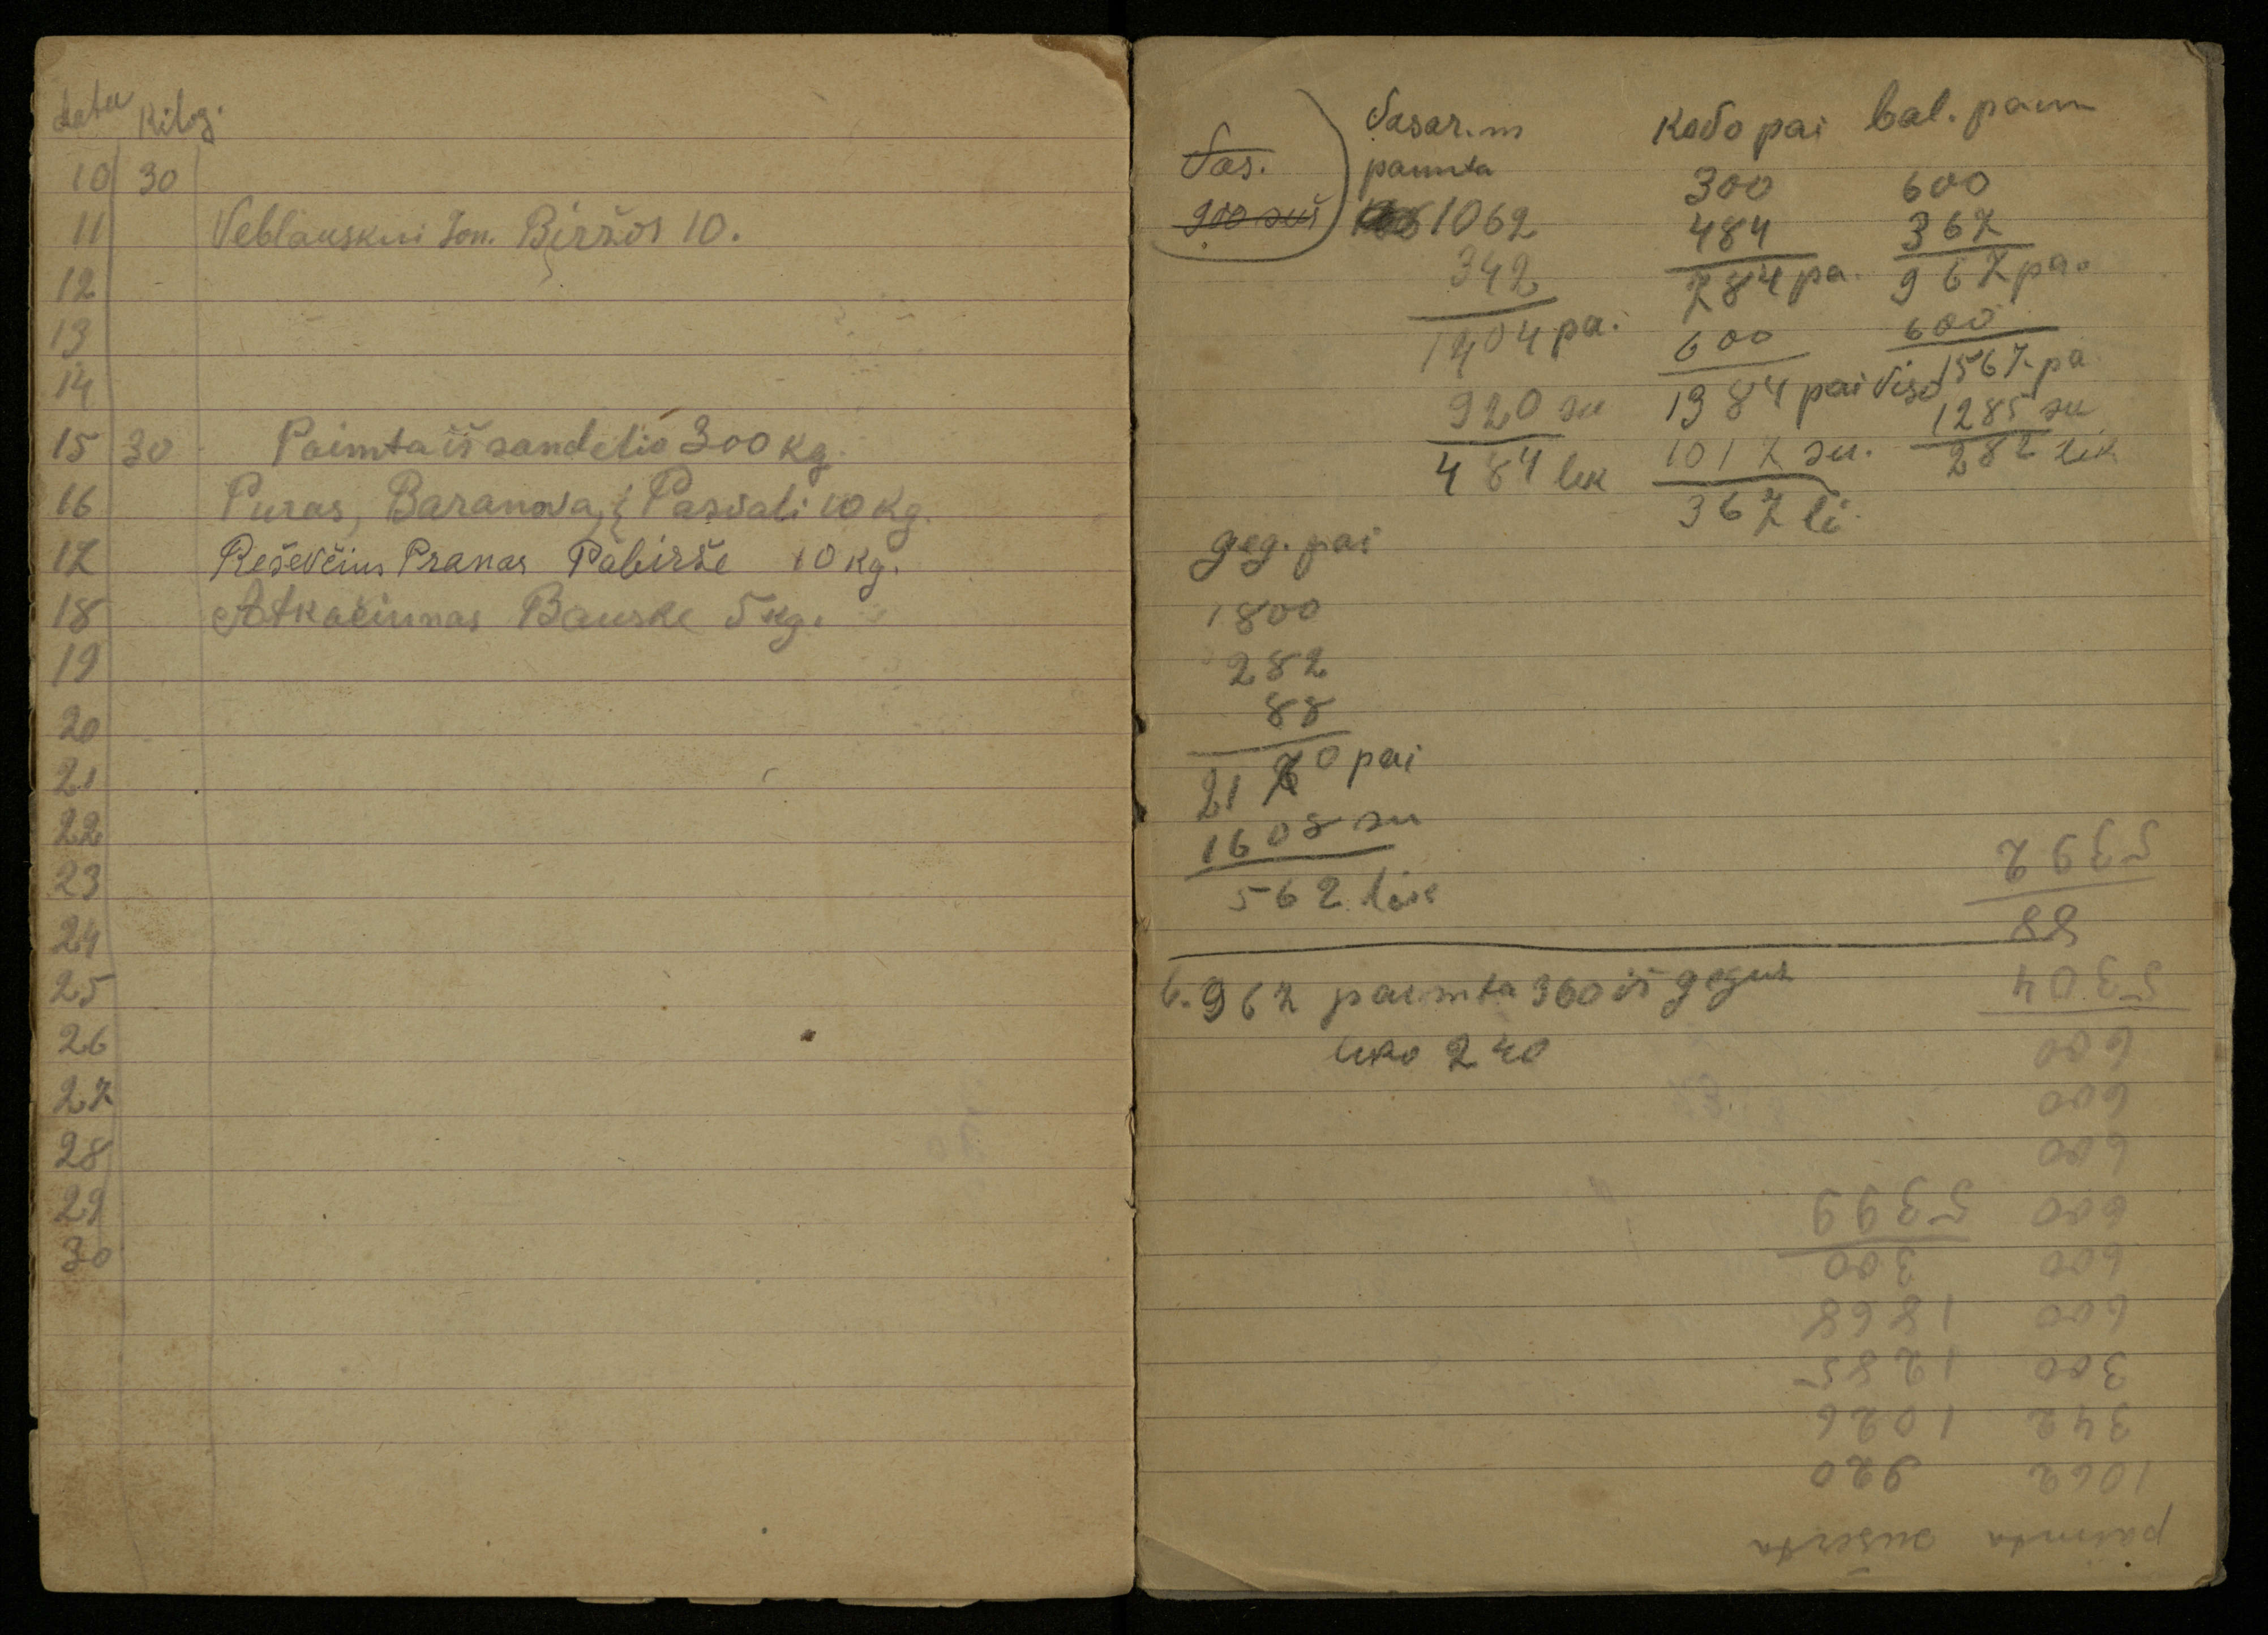 data Kilog.
10 30
11 Veblauskui Jon. Biržos 10.
12
13
14
15 30 Paimta iš sandėlio 300 kg.
16 Puras, Baranova, Pasvali 10 kg.
17 Reševčius Pranas Pabirže 10 kg.
18 Atkočiunas Bauske 5 kg.
19
20
21
22
23
24
25
26
27
28
29
30
Vas.
900 suš
Vasar. m
paimta
1062
342
1404 pa.
920 su
484 lik
Kovo pai
300
484
784 pa.
600
1384 pai viso
1017 su.
367 li.
bal. paim
600
367
967 pa.
600
1567 pa
1285 su
282 lik
geg. pai
1800
282
88
2170 pai
1608 su
562 lik
b. 967 paimta 360 iš geguž
liko 240
paimta sušerta
1062 920
342 1026
300 1285
600 1868
600 300
600 5399
600
600
600
5304
88
5392